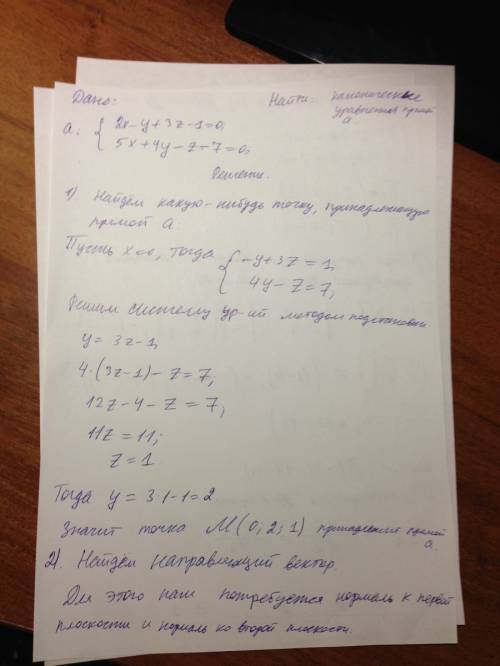 Дано:
Найти: канонические
уравнения прямой
a.
a: { 2x-y+3z-1=0,
5x+4y-z-7=0,
Решение.
1) Найдём какую-нибудь точку, принадлежащую
прямой a.
Пусть x=0, тогда { -y+3z=1,
4y-z=7,
Решим систему ур-ий методом подстановки.
y=3z-1,
4·(3z-1)-z=7;
12z-4-z=7,
11z=11;
z=1
Тогда y=3·1-1=2
Значит точка M(0;2;1) принадлежит прямой
a.
2). Найдём направляющий вектор.
Для этого нам потребуется нормаль к первой
плоскости и нормаль ко второй плоскости.